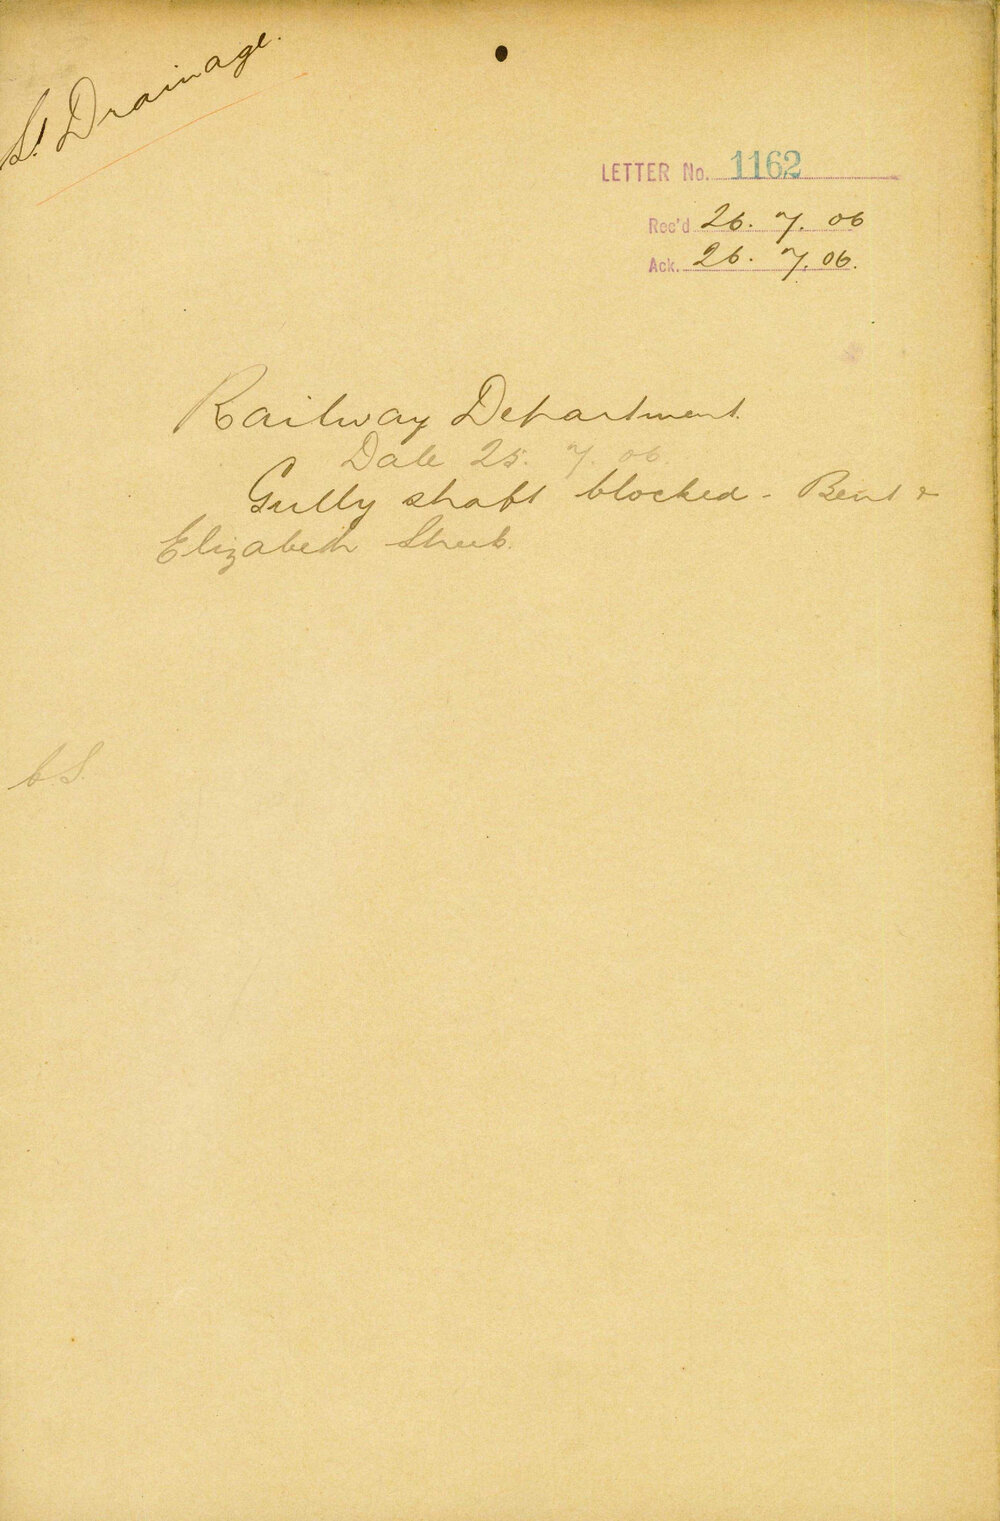 St Drainage.
LETTER No. 1162
Rec'd 26. 7. 06
Ack. 26. 7. 06.
Railway Department.
Date 25. 7. 06.
Gully shaft blocked - Bent &
Elizabeth Streets.
C.S.